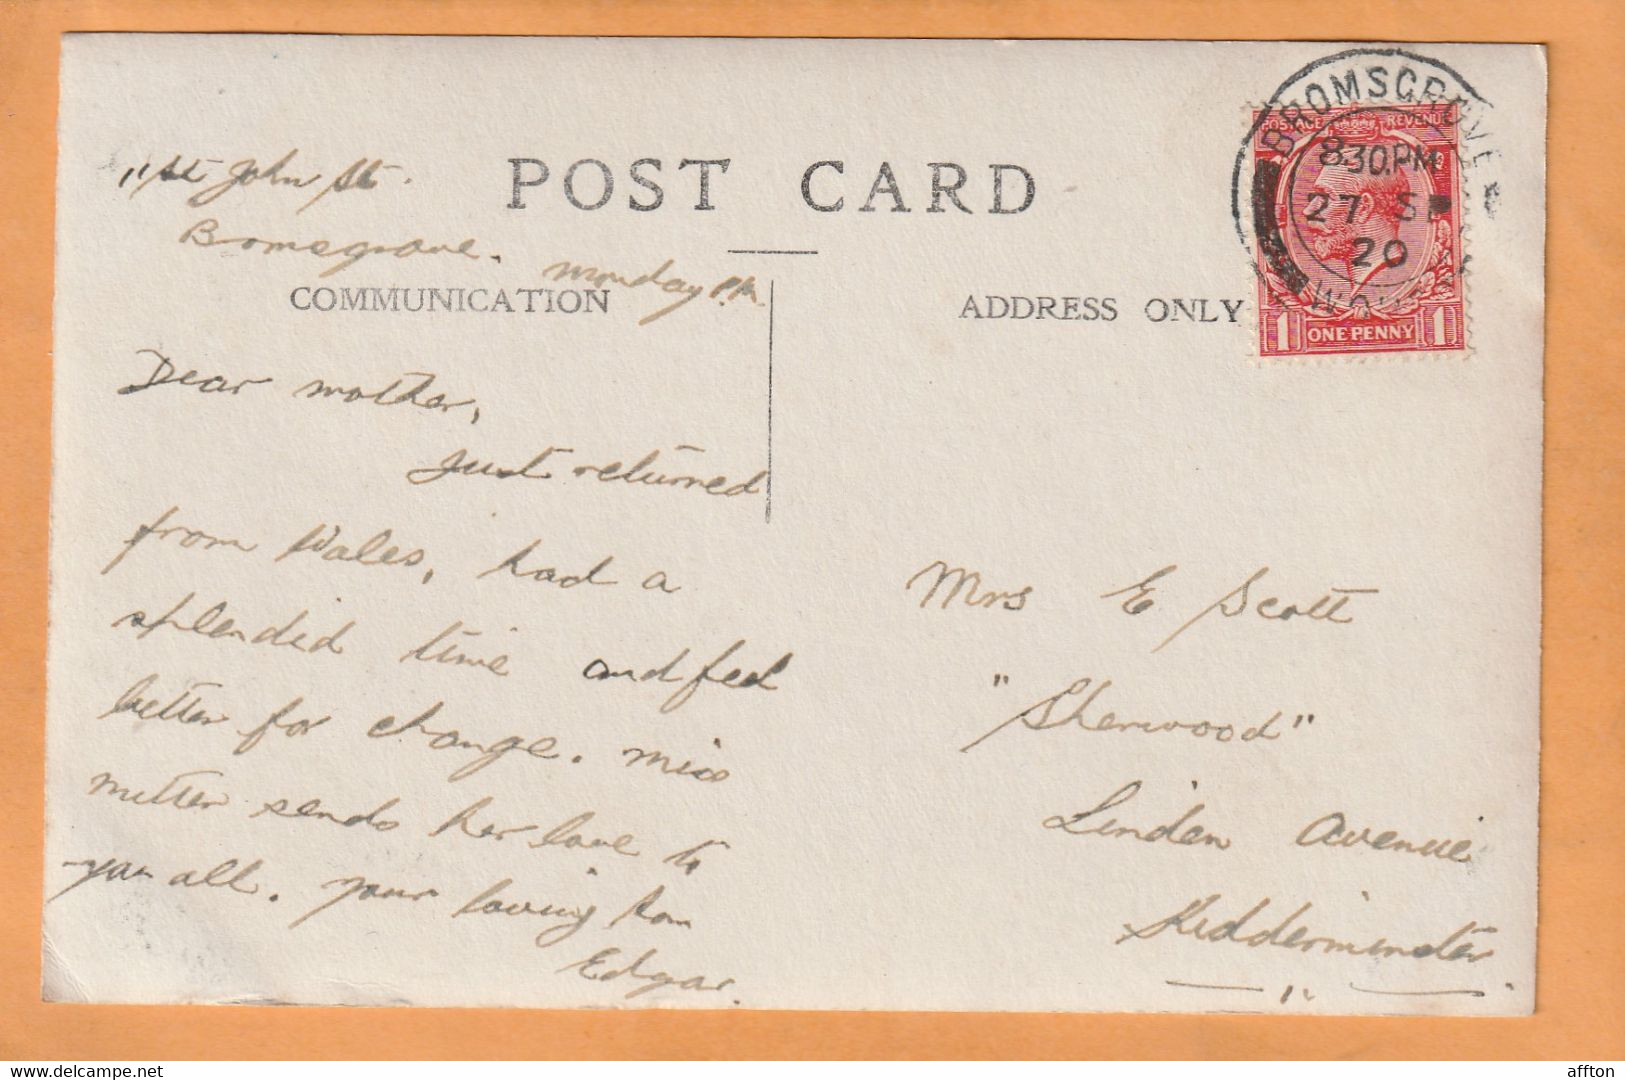 POST CARD
COMMUNICATION
ADDRESS ONLY
11 St John St.
Bromsgrove.
Monday P.M.
Dear Mother,
Just returned
from Wales, had a
splendid time and feel
better for change. Miss
sends her love to
you all. Your loving Son
Edgar.
Mrs E Scott
"Sherwood"
Linden Avenue
Kidderminster
BROMSGROVE
8.30.PM
27 SP
20
POSTAGE REVENUE
1 ONE PENNY 1
affton